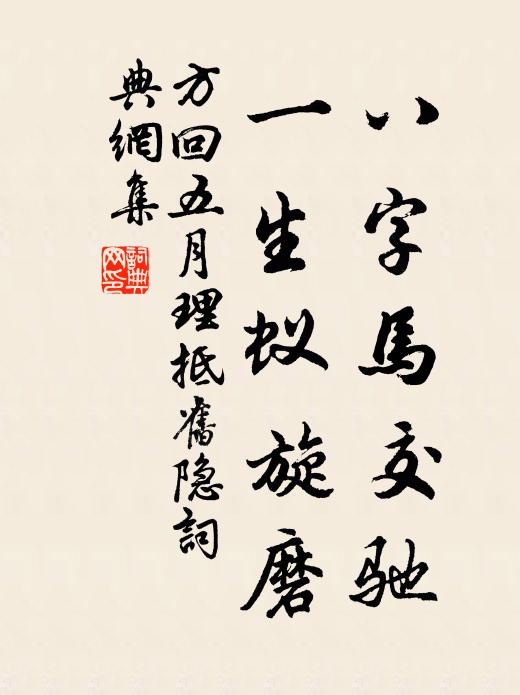 八字馬交馳
一生蚁旋磨
方回五月理抵舊隐詞
典網集
詞典網印